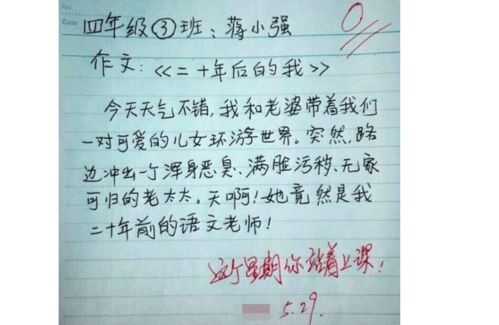 No.
Date
四年级③班：蒋小强
0
作文：<<二十年后的我>>
今天天气不错，我和老婆带着我们
一对可爱的儿女环游世界。突然，路
边冲出一个浑身恶息、满脸污秽、无家
可归的老太太。天啊！她竟然是我
二十年前的语文老师！
这个星期你站着上课！
5.29.